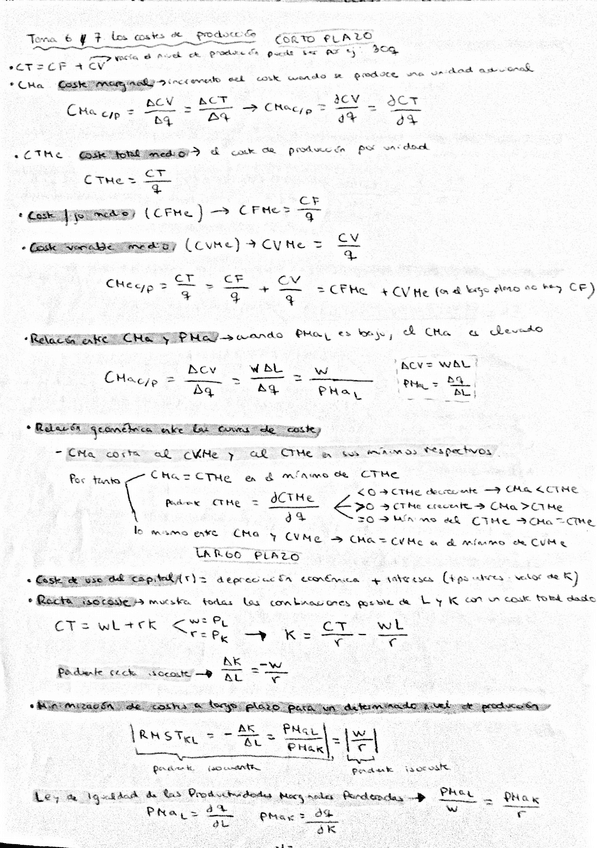 Tema 6 y 7 Los costes de producción CORTO PLAZO
• CT = CF + CV → varía el nivel de producción puede ser por ej: 30q
• CMa Coste marginal → incremento del coste cuando se produce una unidad adicional
CMa c/p = ΔCV/Δq = ΔCT/Δq → CMa c/p = ∂CV/∂q = ∂CT/∂q
• CTMe Coste total medio → el coste de producción por unidad
CTMe = CT/q
• Coste fijo medio (CFMe) → CFMe = CF/q
• Coste variable medio (CVMe) → CVMe = CV/q
CMe c/p = CT/q = CF/q + CV/q = CFMe + CVMe (en el largo plazo no hay CF)
• Relación entre CMa y PMa → cuando PMaL es bajo, el CMa es elevado
CMa c/p = ΔCV/Δq = WΔL/Δq = W/PMaL
ΔCV = WΔL
PMaL = Δq/ΔL
• Relación geométrica entre las curvas de coste
- CMa corta al CVMe y al CTMe en sus mínimos respectivos.
Por tanto
CMa = CTMe en el mínimo de CTMe
pendiente CTMe = ∂CTMe/∂q
<0 → CTMe decreciente → CMa < CTMe
>0 → CTMe creciente → CMa > CTMe
=0 → Mínimo del CTMe → CMa = CTMe
lo mismo entre CMa y CVMe → CMa = CVMe en el mínimo de CVMe
LARGO PLAZO
• Coste de uso del capital (r) = depreciación económica + intereses (tipo interés · valor de K)
• Recta isocoste → muestra todas las combinaciones posible de L y K con un coste total dado
CT = wL + rK < w = PL r = PK → K = CT/r - wL/r
pendiente recta isocoste → ΔK/ΔL = -w/r
• Minimización de costes a largo plazo para un determinado nivel de producción
|RMST KL = - ΔK/ΔL = PMaL/PMaK| = |w/r|
pendiente isocuanta pendiente isocoste
Ley de Igualdad de las Productividades Marginales Ponderadas → PMaL/w = PMaK/r
PMaL = ∂q/∂L PMaK = ∂q/∂K